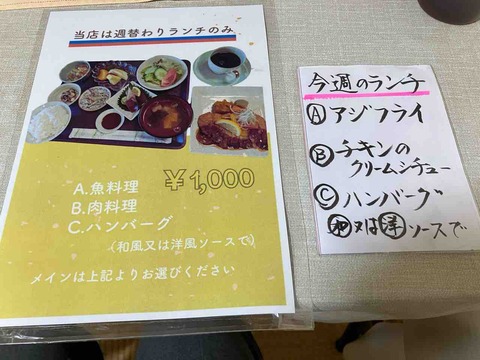 当店は週替わりランチのみ
¥1,000
A.魚料理
B.肉料理
C.ハンバーグ
(和風又は洋風ソースで)
メインは上記よりお選びください
今週のランチ
Ⓐアジフライ
Ⓑチキンの
クリームシチュー
Ⓒハンバーグ
和又は洋ソースで